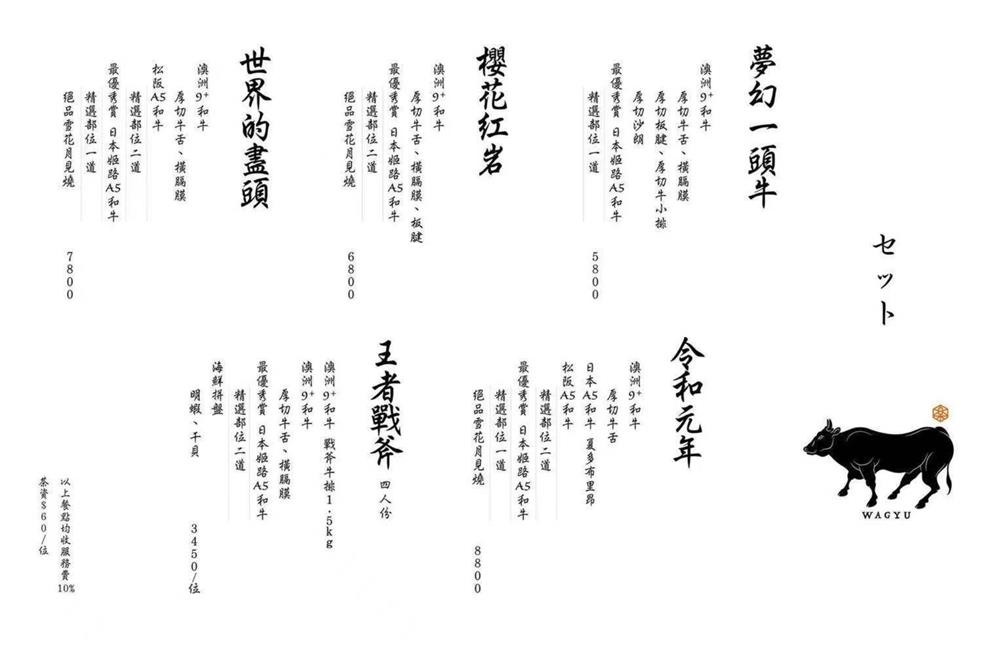 セット
WAGYU
夢幻一頭牛
澳洲9⁺和牛
厚切牛舌、橫膈膜
厚切板腱、厚切牛小排
厚切沙朗
最優秀賞 日本姬路A5和牛
精選部位一道
5800
櫻花紅岩
澳洲9⁺和牛
厚切牛舌、橫膈膜、板腱
最優秀賞 日本姬路A5和牛
精選部位二道
絕品雪花月見燒
6800
世界的盡頭
澳洲9⁺和牛
厚切牛舌、橫膈膜
松阪A5和牛
精選部位二道
最優秀賞 日本姬路A5和牛
精選部位一道
絕品雪花月見燒
7800
令和元年
澳洲9⁺和牛
厚切牛舌
日本A5和牛 夏多布里昂
松阪A5和牛
精選部位二道
最優秀賞 日本姬路A5和牛
精選部位一道
絕品雪花月見燒
8800
王者戰斧 四人份
澳洲9⁺和牛 戰斧牛排1.5kg
澳洲9⁺和牛
厚切牛舌、橫膈膜
最優秀賞 日本姬路A5和牛
精選部位二道
海鮮拼盤
明蝦、干貝
3450/位
以上餐點均收服務費10%
茶資$60/位